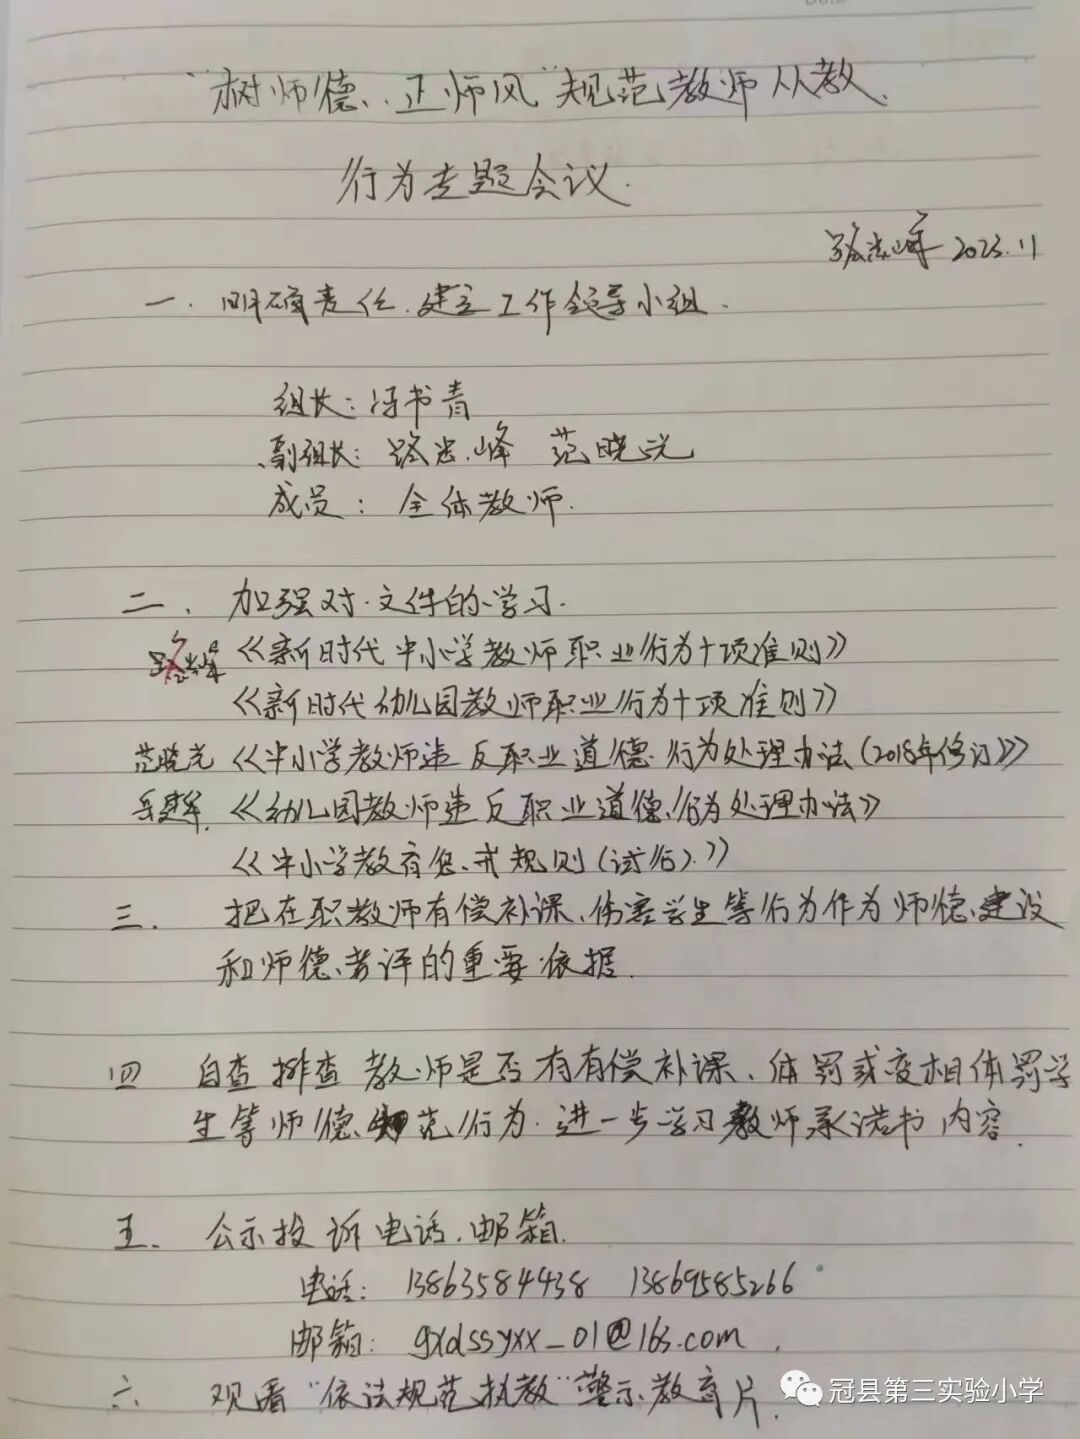 "树师德、正师风"规范教师从教
行为专题会议.
路忠峰 2023.11
一. 明确责任.建立工作领导小组.
组长:冯书青
副组长: 路忠峰 范晓光
成员: 全体教师.
二. 加强对文件的学习.
路忠峰《新时代中小学教师职业行为十项准则》
《新时代幼儿园教师职业行为十项准则》
范晓光《中小学教师违反职业道德行为处理办法(2018年修订)》
《幼儿园教师违反职业道德行为处理办法》
《中小学教育惩戒规则(试行).》
三. 把在职教师有偿补课、伤害学生等行为作为师德建设
和师德考评的重要依据.
四 自查排查教师是否有有偿补课、体罚或变相体罚学
生等师德失范行为.进一步学习教师承诺书内容.
五. 公示投诉电话.邮箱.
电话: 13863584438 13869585266
邮箱: gxdssyxx_01@163.com.
六. 观看"依法规范执教"警示教育片.
冠县第三实验小学